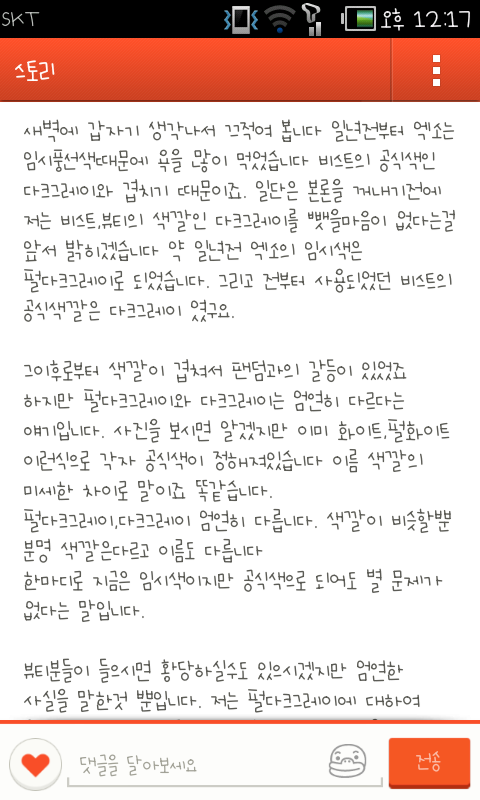 SKT 오후 12:17
스토리
새벽에 갑자기 생각나서 끄적여 봅니다 일년전부터 엑소는
임시풍선색때문에 욕을 많이 먹었습니다 비스트의 공식색인
다크그레이와 겹치기 때문이죠. 일단은 본론을 꺼내기전에
저는 비스트,뷰티의 색깔인 다크그레이를 뺏을마음이 없다는걸
앞서 밝히겠습니다 약 일년전 엑소의 임시색은
펄다크그레이로 되었습니다. 그리고 전부터 사용되었던 비스트의
공식색깔은 다크그레이 였구요.
그이후로부터 색깔이 겹쳐서 팬덤과의 갈등이 있었죠
하지만 펄다크그레이와 다크그레이는 엄연히 다르다는
얘기입니다. 사진을 보시면 알겠지만 이미 화이트,펄화이트
이런식으로 각자 공식색이 정해져있습니다 이름 색깔의
미세한 차이로 말이죠 똑같습니다.
펄다크그레이,다크그레이 엄연히 다릅니다. 색깔이 비슷할뿐
분명 색깔은다르고 이름도 다릅니다
한마디로 지금은 임시색이지만 공식색으로 되어도 별 문제가
없다는 말입니다.
뷰티분들이 들으시면 황당하실수도 있으시겠지만 엄연한
사실을 말한것 뿐입니다. 저는 펄다크그레이에 대하여
댓글을 달아보세요
전송